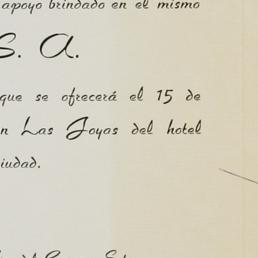 apoyo brindado en el mismo
S. A.
que se ofrecerá el 15 de
n Las Joyas del hotel
iudad.